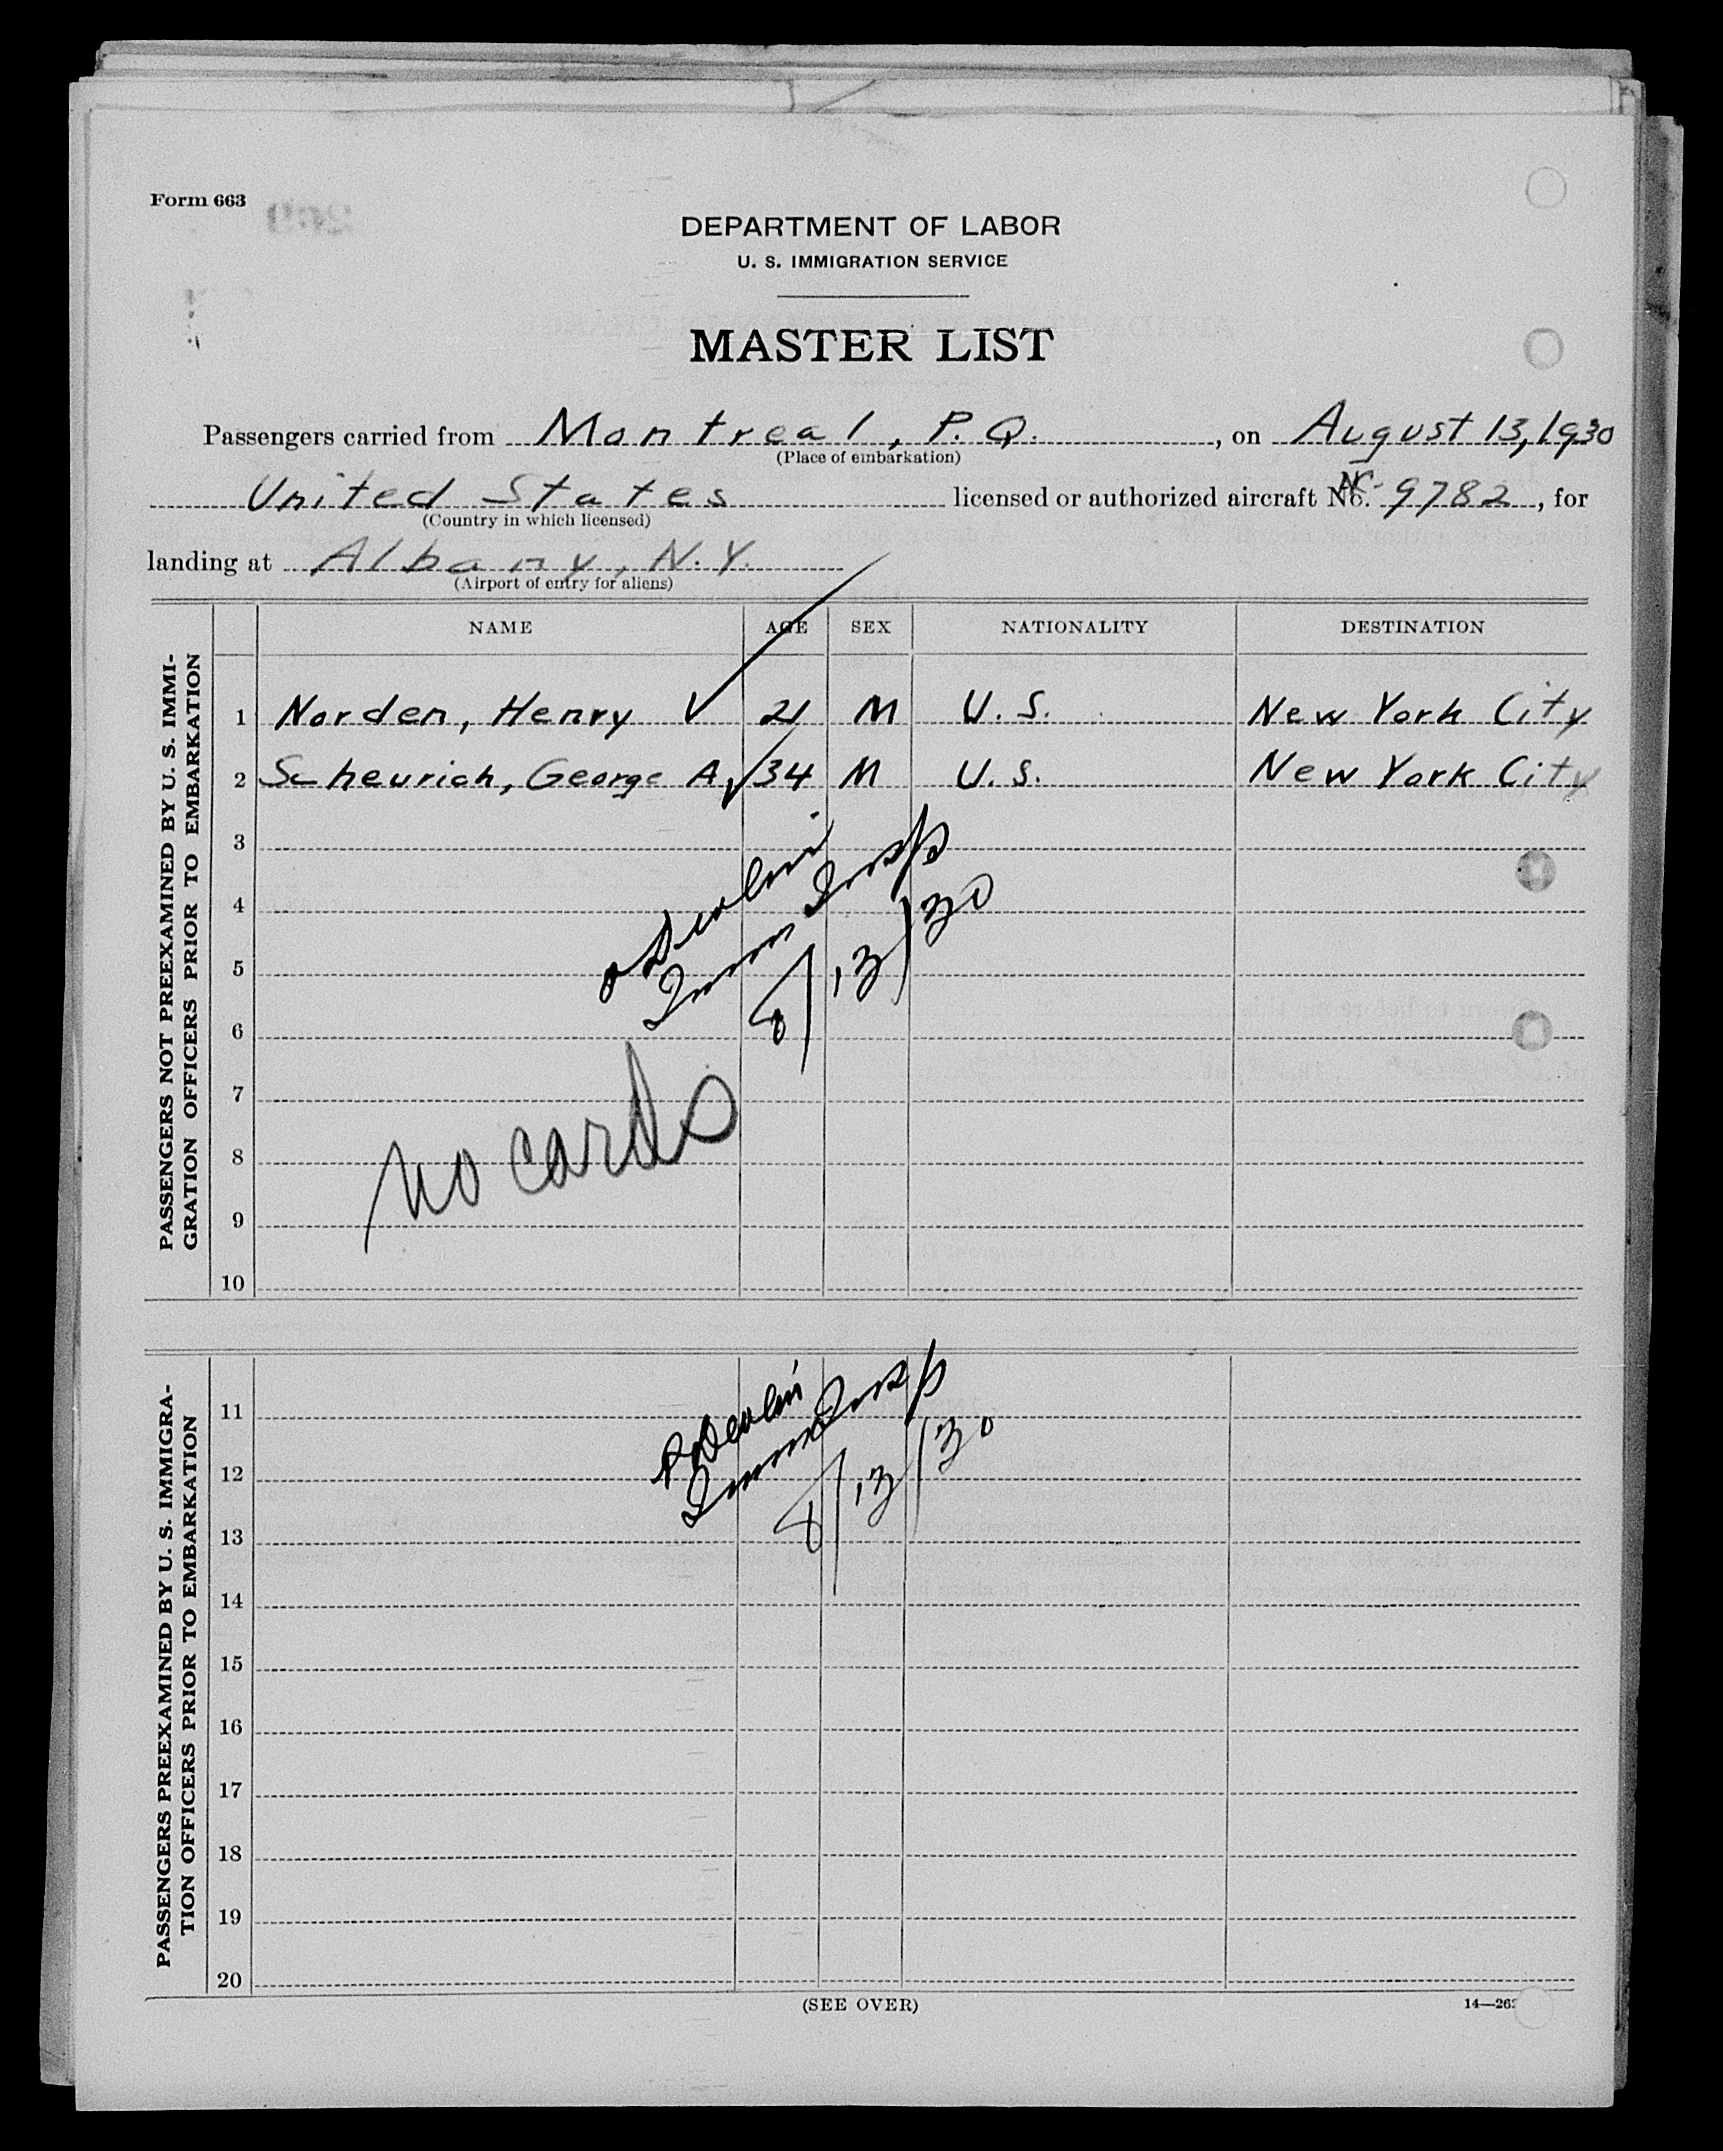 Form 663
DEPARTMENT OF LABOR
U. S. IMMIGRATION SERVICE
MASTER LIST
Passengers carried from Montreal, P. Q. , on August 13, 1930
(Place of embarkation)
United States licensed or authorized aircraft No. NC- 9782 , for
(Country in which licensed)
landing at Albany, N.Y.
(Airport of entry for aliens)
NAME AGE SEX NATIONALITY DESTINATION
PASSENGERS NOT PREEXAMINED BY U. S. IMMI-
GRATION OFFICERS PRIOR TO EMBARKATION
1 Norden, Henry ✓ 21 M U. S. New York City
2 Scheurich, George A ✓ 34 M U. S. New York City
3
4
5
6
7
8
9
10
Devlin
Imm Insp
8/13/30
No cards
PASSENGERS PREEXAMINED BY U. S. IMMIGRA-
TION OFFICERS PRIOR TO EMBARKATION
11
12
13
14
15
16
17
18
19
20
Devlin
Imm Insp
8/13/30
(SEE OVER)
14—26